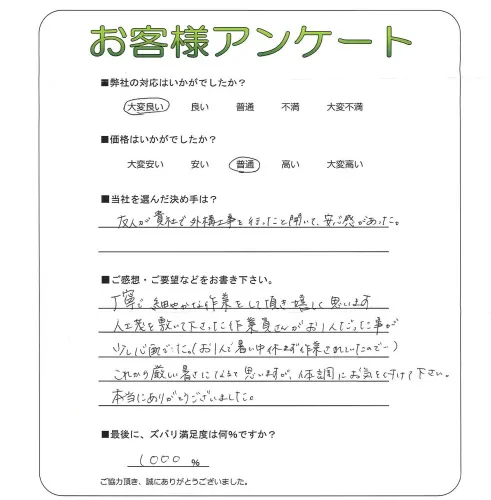 お客様アンケート
■弊社の対応はいかがでしたか？
大変良い 良い 普通 不満 大変不満
■価格はいかがでしたか？
大変安い 安い 普通 高い 大変高い
■当社を選んだ決め手は？
友人が貴社で外構工事を行ったと聞いて、安心感があった。
■ご感想・ご要望などをお書き下さい。
丁寧で細やかな作業をして頂き嬉しく思います
人工芝を敷いて下さった作業員さんがお1人だった事が
少し心配でした。(お1人で暑い中休まず作業されていたので…)
これから厳しい暑さになると思いますが、体調にお気を付けて下さい。
本当にありがとうございました。
■最後に、ズバリ満足度は何%ですか？
1000 %
ご協力頂き、誠にありがとうございました。